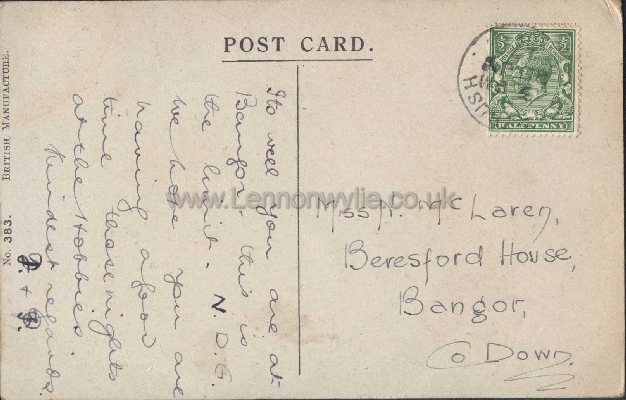 POST CARD.
Its well you are at
Bangor, this is
the limit. N. D. G.
We hope you are
having a good
time these nights
at the Hobbies
Kindest regards.
J. + J.
Miss A. McLaren,
Beresford House,
Bangor,
Co Down.
No. 383. BRITISH MANUFACTURE.
HALFPENNY
www.Lennonwylie.co.uk